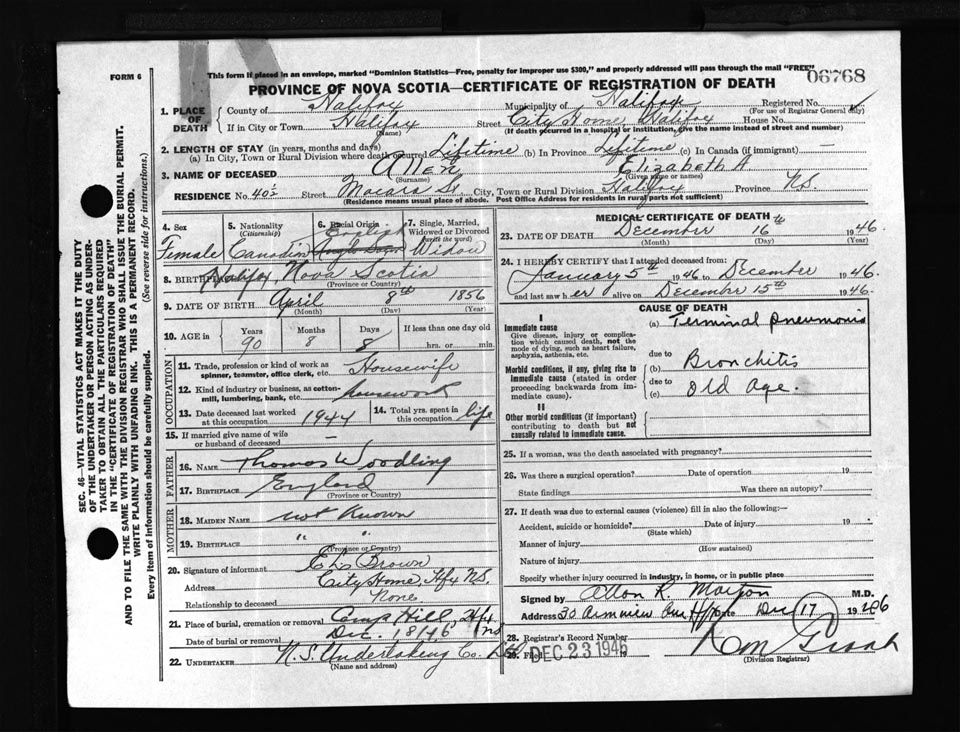 FORM 6
This form if placed in an envelope, marked "Dominion Statistics—Free, penalty for improper use $300," and properly addressed will pass through the mail "FREE"
06768
PROVINCE OF NOVA SCOTIA—CERTIFICATE OF REGISTRATION OF DEATH
1. PLACE OF DEATH
County of Halifax Municipality of Halifax Registered No.
(For use of Registrar General only)
If in City or Town Halifax Street City Home, Halifax House No.
(Name) (If death occurred in a hospital or institution, give the name instead of street and number)
2. LENGTH OF STAY (in years, months and days)
(a) In City, Town or Rural Division where death occurred Lifetime (b) In Province Lifetime (c) In Canada (if immigrant) —
3. NAME OF DECEASED Allen Elizabeth A
(Surname) (Given name or names)
RESIDENCE No. 40½ Street Macara St City, Town or Rural Division Halifax Province NS.
(Residence means usual place of abode. Post Office Address for residents in rural parts not sufficient)
4. Sex Female
5. Nationality (Citizenship) Canadian
6. Racial Origin English
7. Single, Married, Widowed or Divorced (write the word) Widow
8. BIRTHPLACE Halifax, Nova Scotia
(Province or Country)
9. DATE OF BIRTH April 8th 1856
(Month) (Day) (Year)
10. AGE in Years Months Days If less than one day old
90 8 8 hrs. or min.
OCCUPATION
11. Trade, profession or kind of work as spinner, teamster, office clerk, etc. Housewife
12. Kind of industry or business, as cotton-mill, lumbering, bank, etc. housework
13. Date deceased last worked at this occupation 1944
14. Total yrs. spent in this occupation life
15. If married give name of wife or husband of deceased —
FATHER
16. NAME Thomas Woodling
17. BIRTHPLACE England
(Province or Country)
MOTHER
18. MAIDEN NAME not Known
19. BIRTHPLACE " "
(Province or Country)
20. Signature of informant Brown
Address City Home, Hfx NS.
Relationship to deceased None.
21. Place of burial, cremation or removal Camp Hill, Hfx NS
Date of burial or removal Dec. 18/46
22. UNDERTAKER N.S. Undertaking Co. Ltd
(Name and address)
MEDICAL CERTIFICATE OF DEATH
23. DATE OF DEATH December 16th 1946
(Month) (Day) (Year)
24. I HEREBY CERTIFY that I attended deceased from:
January 5th 1946 to December 1946
and last saw her alive on December 15th 1946.
CAUSE OF DEATH
I
Immediate cause
Give disease, injury or complication which caused death, not the mode of dying, such as heart failure, asphyxia, asthenia, etc.
(a) Terminal pneumonia
due to
Morbid conditions, if any, giving rise to immediate cause (stated in order proceeding backwards from immediate cause).
(b) Bronchitis
due to
(c) Old Age.
II
Other morbid conditions (if important) contributing to death but not causally related to immediate cause.
25. If a woman, was the death associated with pregnancy?
26. Was there a surgical operation? Date of operation 19
State findings Was there an autopsy?
27. If death was due to external causes (violence) fill in also the following:—
Accident, suicide or homicide? Date of injury 19
(State which)
Manner of injury
(How sustained)
Nature of injury
Specify whether injury occurred in industry, in home, or in public place
Signed by Allan R. Morton M.D.
Address 30 Armview Ave Hfx Date Dec 17 1946
28. Registrar's Record Number
29. Filed DEC 23 1946 19
(Division Registrar)
SEC. 46—VITAL STATISTICS ACT MAKES IT THE DUTY OF THE UNDERTAKER OR PERSON ACTING AS UNDERTAKER TO OBTAIN ALL THE PARTICULARS REQUIRED IN THE "CERTIFICATE OF REGISTRATION OF DEATH" AND TO FILE THE SAME WITH THE DIVISION REGISTRAR WHO SHALL ISSUE THE BURIAL PERMIT.
WRITE PLAINLY WITH UNFADING INK. THIS IS A PERMANENT RECORD.
Every item of information should be carefully supplied. (See reverse side for instructions.)